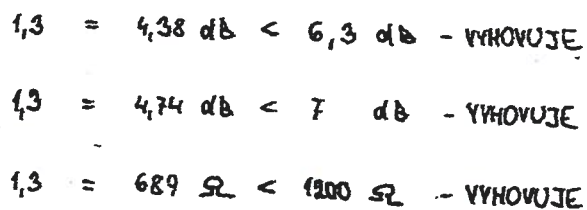 1,3 = 4,38 dB < 6,3 dB - VYHOVUJE
1,3 = 4,74 dB < 7 dB - VYHOVUJE
1,3 = 689 Ω < 1200 Ω - VYHOVUJE